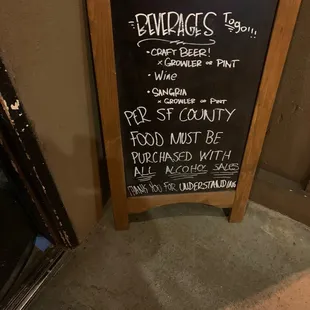 BEVERAGES Togo!!!
• CRAFT BEER!
x GROWLER OR PINT
• WINE
• SANGRIA
x GROWLER OR PINT
PER SF COUNTY
FOOD MUST BE
PURCHASED WITH
ALL ALCOHOL SALES
THANK YOU FOR UNDERSTANDING